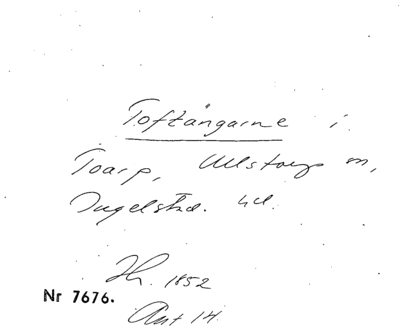 Toftängarne i
Toarp, Ullstorps sn,
Ingelstad. hd.
Hr. 1852
Nr 7676.
Akt 14.